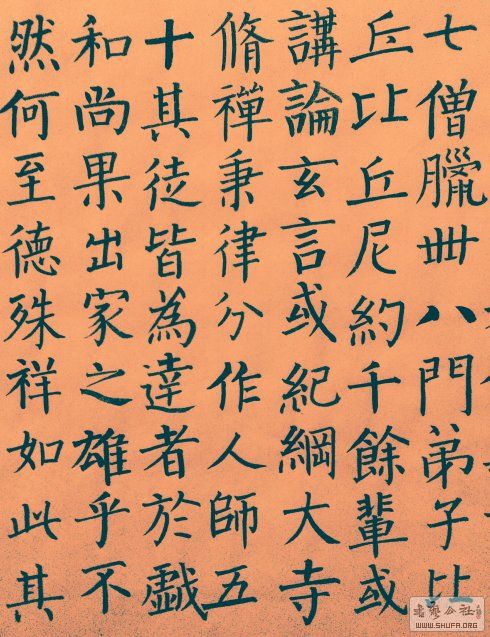 七僧臘卌八門弟子比
丘比丘尼約千餘輩或
講論玄言或紀綱大寺
脩禪秉律分作人師五
十其徒皆為達者於戲
和尚果出家之雄乎不
然何至德殊祥如此其
公社
WWW.SHUFA.ORG